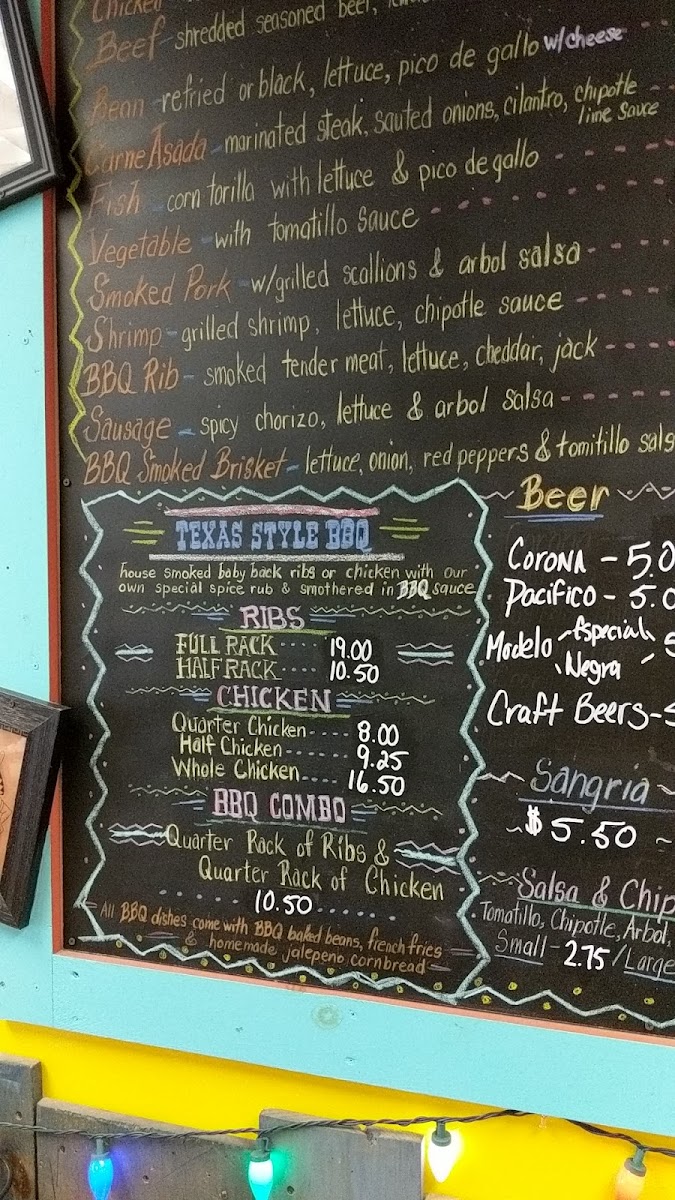 Chicken
Beef - shredded seasoned beef,
Bean - refried or black, lettuce, pico de gallo w/cheese
Carne Asada - marinated steak, sauted onions, cilantro, chipotle
lime sauce
Fish - corn torilla with lettuce & pico de gallo
Vegetable - with tomatillo sauce
Smoked Pork - w/grilled scallions & arbol salsa
Shrimp - grilled shrimp, lettuce, chipotle sauce
BBQ Rib - smoked tender meat, lettuce, cheddar, jack
Sausage - spicy chorizo, lettuce & arbol salsa
BBQ Smoked Brisket - lettuce, onion, red peppers & tomitillo sals
TEXAS STYLE BBQ
house smoked baby back ribs or chicken with our
own special spice rub & smothered in BBQ sauce
RIBS
FULL RACK ---- 19.00
HALF RACK ---- 10.50
CHICKEN
Quarter Chicken ---- 8.00
Half Chicken ----- 9.25
Whole Chicken ----- 16.50
BBQ COMBO
Quarter Rack of Ribs &
Quarter Rack of Chicken
10.50
All BBQ dishes come with BBQ baked beans, french fries
& homemade jalepeno cornbread
Beer
Corona - 5.0
Pacifico - 5.0
Modelo Especial
Negra
Craft Beers -
Sangria
$5.50
Salsa & Chip
Tomatillo, Chipotle, Arbol,
Small - 2.75 / Large